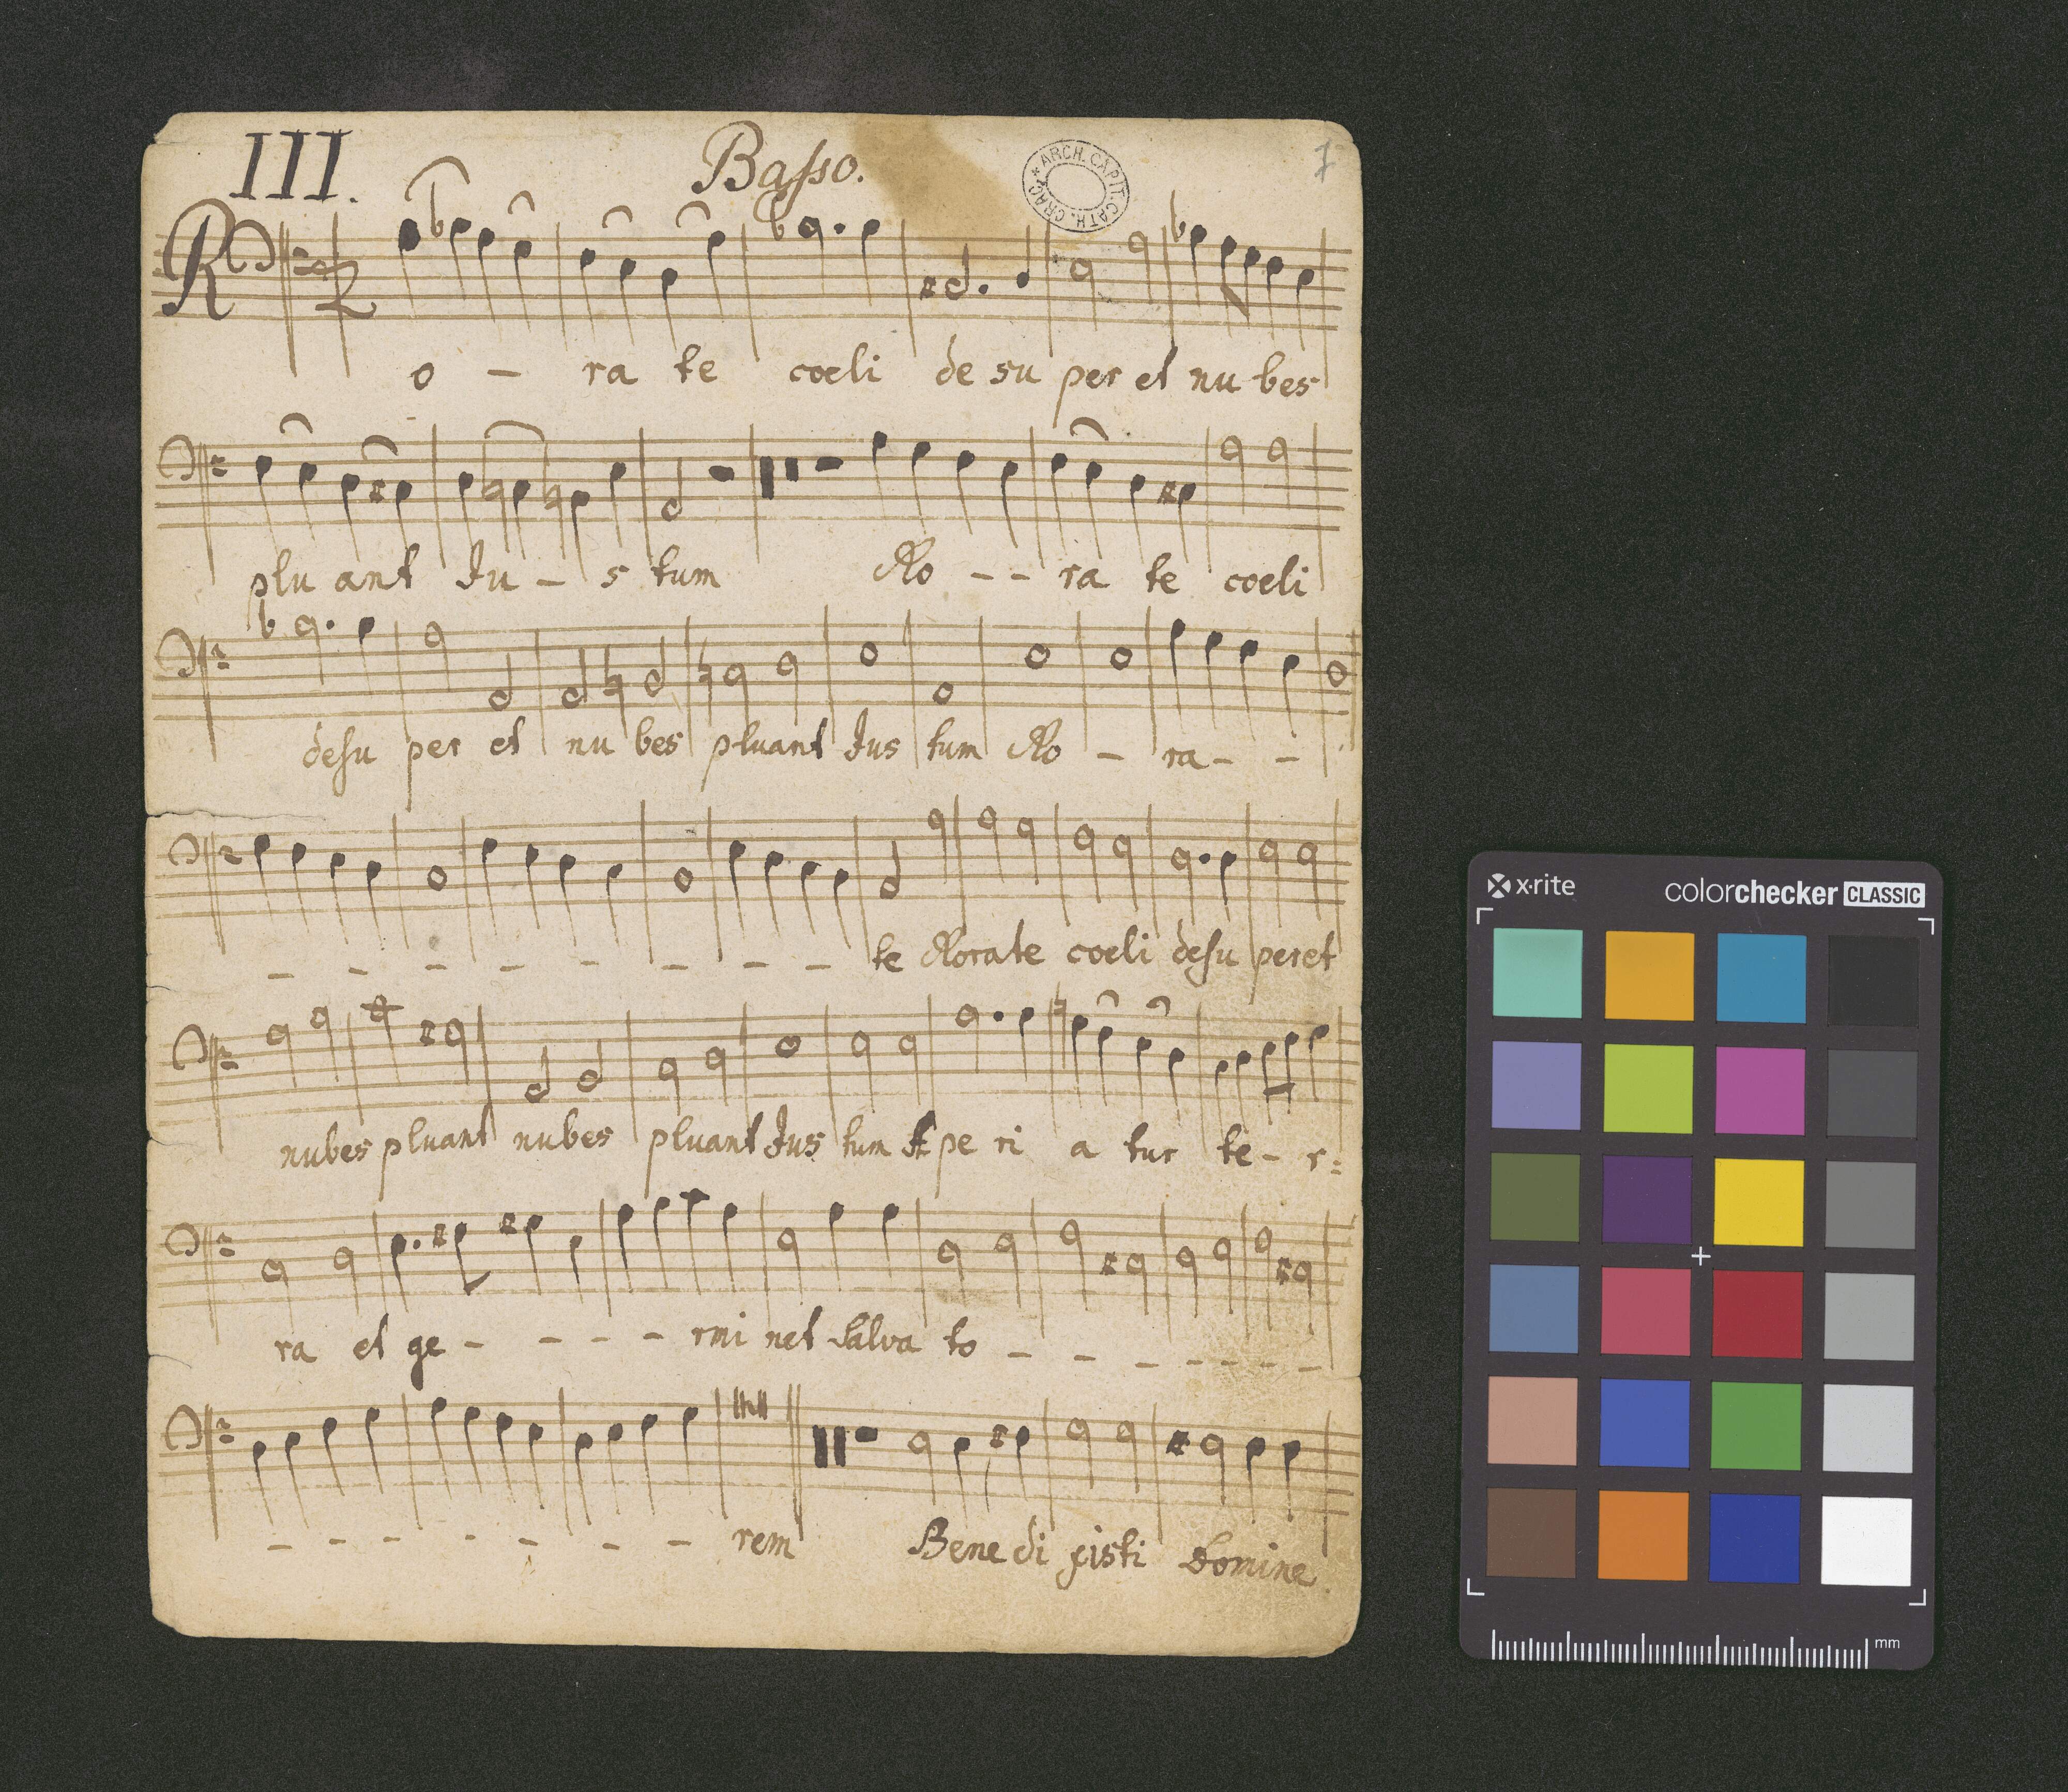 III. Basso. 1
ARCH. CAPIT. CATH. CRAC
R
o - ra te coeli de su per et nu bes
plu ant Ju - s tum Ro - - ra te coeli
desu per et nu bes pluant Jus tum Ro - ra - -
- - - - - - - - te Rorate coeli desu peret
nubes pluant nubes pluant Jus tum Ape ri a tur te - r:
ra et ge - - - - rmi net Salva to - - - - - - -
- - - - - - - rem Bene di xisti Domine.
x·rite colorchecker CLASSIC
mm